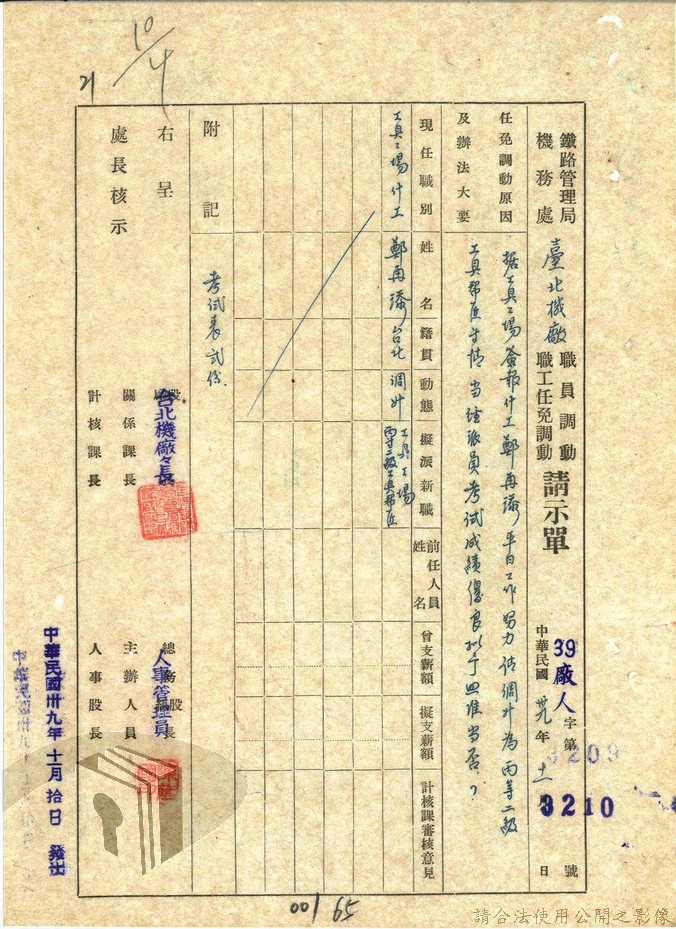 10/4
21
鐵路管理局
機務處
臺北機廠
職員調動
職工任免調動
請示單
中華民國卅九年十一月 日
39廠人字第 號
3209
3210
任免調動原因
及辦法大要
據工具工場簽報什工鄭再添平日工作努力估調升為丙等二級
工具幫匠等情當經派員考試成績優良擬予照准當否?
現任職別
姓名
籍貫
動態
擬派新職
前任人員
姓名
曾支薪額
擬支薪額
計核課審核意見
工具工場什工
鄭再添
台北
調升
工具工場
丙等二級工具幫匠
附記
考試表弍份.
右呈
處長核示
台北機廠々長
關係課長
計核課長
總務股長
人事管理員
主辦人員
人事股長
中華民國卅九年十一月拾日 發出
001/65
請合法使用公開之影像